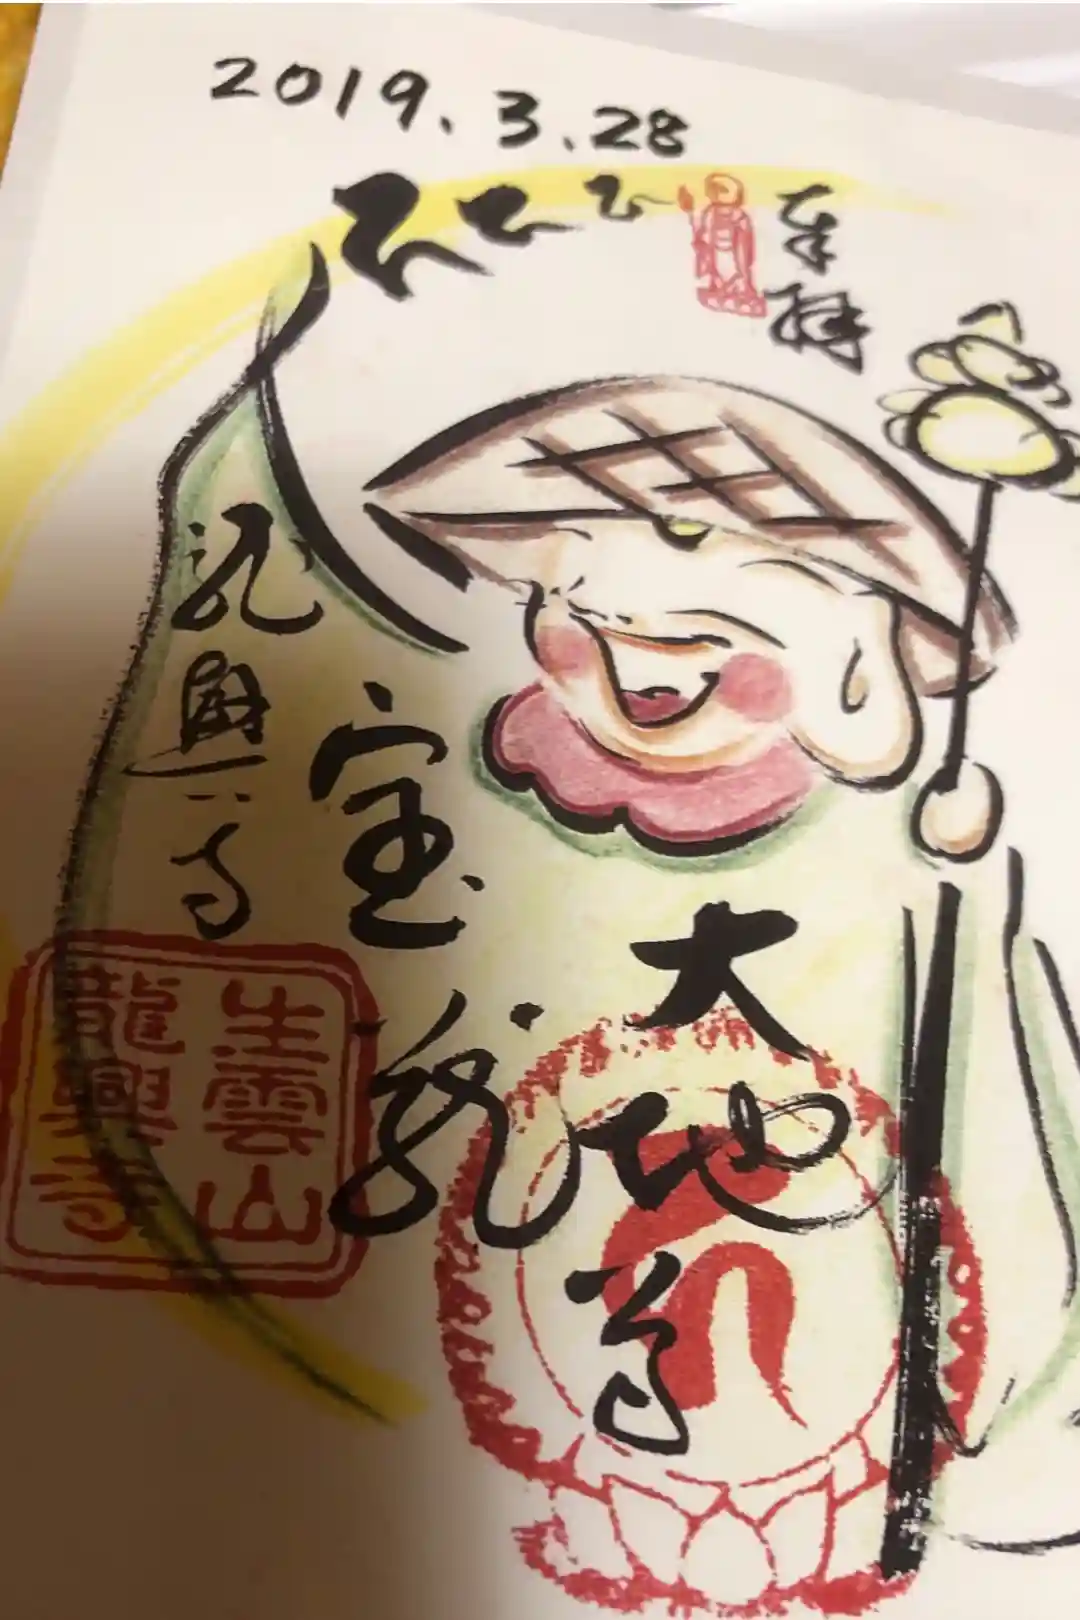 2019.3.28
奉拝
大地尊
宝
龍興寺
生雲山
龍興寺